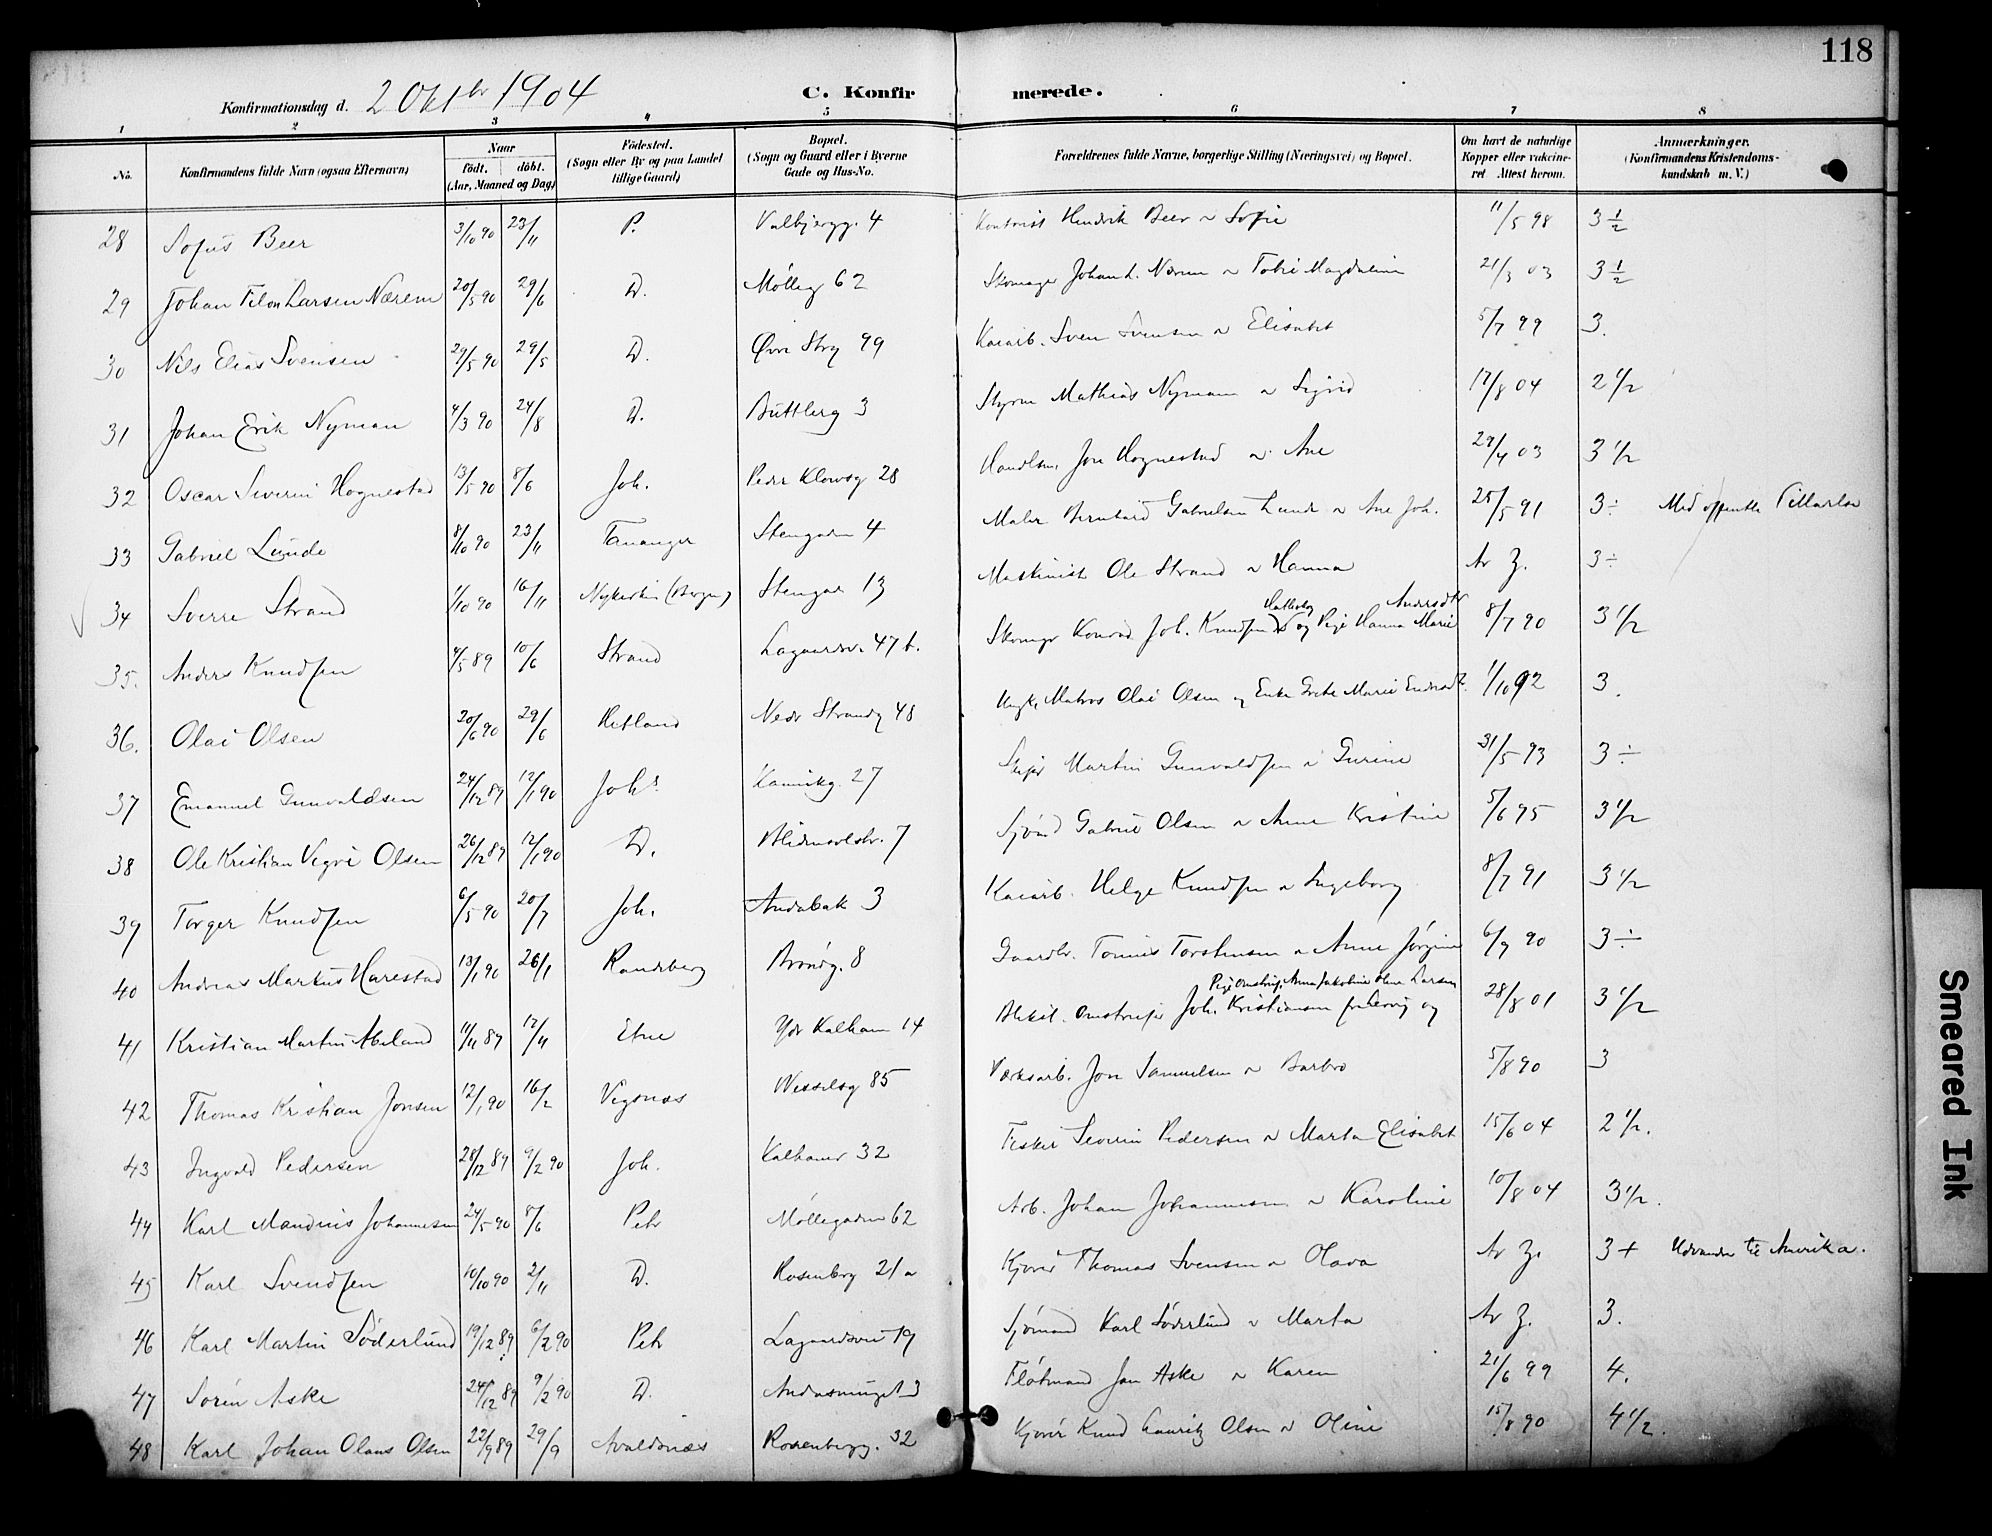 118
Konfirmationsdag d. 2 Oktbr 1904 C. Konfirmerede.
1 2 3 4 5 6 7 8
No. Konfirmandens fulde Navn (ogsaa Efternavn) Naar født. døbt. (Aar, Maaned og Dag) Fødested. (Sogn eller By og paa Landet tillige Gaard) Bopæl. (Sogn og Gaard eller i Byerne Gade og Hus-No. Forældrenes fulde Navne, borgerlige Stilling (Næringsvei) og Bopæl. Om havt de naturlige Kopper eller vaccineret Attest herom. Anmærkninger. (Konfirmandens Kristendomskundskab m. V.)
28 Sofus Beer 3/10 90 23/11 P. Valbjergg. 4 Kontorist Hendrik Beer ~ Sofie 11/5 98 3 1/2
29 Johan Larsen Nærem 20/5 90 29/6 D. Mølleg 62 Skomager Johan L. Nærem ~ Magdalene 21/3 03 3 1/2
30 Nils Elias Svensen 29/5 90 29/5 D. Øvre Strg 99 Kaiarb. Sven Svensen ~ Elisabet 5/7 99 3.
31 Johan Erik Nyman 4/3 90 24/8 D. 3 Styrm Mathias Nyman ~ Sigrid 17/8 04 2 1/2
32 Oscar Severin Hognestad 13/5 90 8/6 Joh. Peder Klowsg 28 Handlsm. Jon Hognestad ~ Ane 29/4 03 3 1/2
33 Gabriel Lunde 8/10 90 23/11 Tananger Stengaden 4 Maler Bernhard Gabrielsen Lunde ~ Ane Joh. 25/5 91 3 ÷ Med
34 Sverre Strand 1/10 90 16/11 Nykirken (Bergen) Stengaden 13 Maskinist Ole Strand ~ Hanna Av Z. 3 ÷
35. Anders Knudsen 4/5 89 10/6 Strand Lagaardsv. 47 b. Skomgr Konrad Joh. Knudsen og Pige Hanna Marie Andersdtr 8/7 90 3 1/2
36. Olai Olsen 20/6 90 29/6 Hetland Nedr Strandg 48 Matros Olai Olsen og Enke Grete Marie 1/10 92 3.
37 Emanuel Gunvaldsen 24/12 89 12/1 90 Johs. Kannikg. 27 Martin Gunvaldsen ~ Gurine 31/5 93 3 ÷
38 Ole Kristian Vegvi Olsen 26/12 89 12/1 90 D. Blidensolstr. 7 Sjømd Gabriel Olsen ~ Anne Kristine 5/6 95 3 1/2
39 Torger Knudsen 6/5 90 20/7 Joh. Andabak 3 Kaiarb. Helge Knudsen ~ Ingeborg 8/7 91 3 1/2
40 Andreas Markus Harestad 13/1 90 26/1 Randeberg Brøndg. 8 Gaardbr. Tønnes Torstensen ~ Anne Jørgine 6/9 90 3 ÷
41 Kristian Martin Abeland 11/11 89 17/11 Etne Ydr Kalhamr 14 Joh. Kristiansen og Pige Anna Jakobine Oline Larsen 28/8 01 3 1/2
42 Thomas Kristian Jonsen 12/1 90 16/2 Vigsnæs Wesselsg 85 Værksarb. Jon Samuelsen ~ Barbro 5/8 90 3
43 Ingvald Pedersen 28/12 89 9/2 90 Joh. Kalhamr 32 Fisker Severin Pedersen ~ Marta Elisabet 15/6 04 2 1/2.
44 Karl Mandius Johannesen 24/5 90 8/6 Petr Møllegaden 62 Arb. Johan Johannesen ~ Karoline 10/8 04 3 1/2.
45 Karl Svendsen 10/10 90 2/11 D. Rosenberg 21 a Kjører Thomas Svensen ~ Olava Av Z. 3 + Udvandr til Amerika.
46 Karl Martin Söderlund 19/12 89 6/2 90 Petr Lagaardsvei 19 Sjømand Karl Söderlund ~ Marta Av Z. 3.
47 Søren Aske 24/12 89 9/2 90 D. Andasmuget 3 Fløtmand Jan Aske ~ Karen 21/6 99 4.
48 Karl Johan Olaus Olsen 22/9 89 29/9 Avaldsnæs Rosenbergg. 32 Kjører Knud Lauritz Olsen ~ Oline 15/8 90 4 1/2.
Smeared Ink